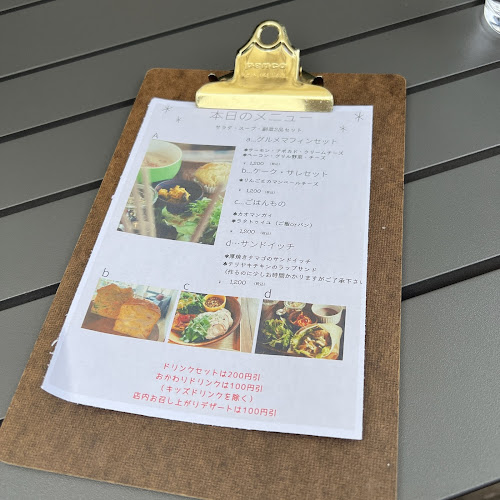 本日のメニュー
サラダ・スープ・副菜2品セット
A
a…グルメマフィンセット
◆サーモン・アボカド・クリームチーズ
◆ベーコン・グリル野菜・チーズ
¥ 1,200 (税込)
b…ケーク・サレセット
◆りんごとカマンベールチーズ
¥ 1,200 (税込)
c…ごはんもの
◆カオマンガイ
◆ラタトゥイユ（ご飯orパン）
¥ 1,200 (税込)
d…サンドイッチ
◆厚焼きタマゴのサンドイッチ
◆テリヤキチキンのラップサンド
（作るのに少しお時間かかりますがご了承下さい
¥ 1,200 (税込)
b
c
d
ドリンクセットは200円引
おかわりドリンクは100円引
（キッズドリンクを除く）
店内お召し上がりデザートは100円引